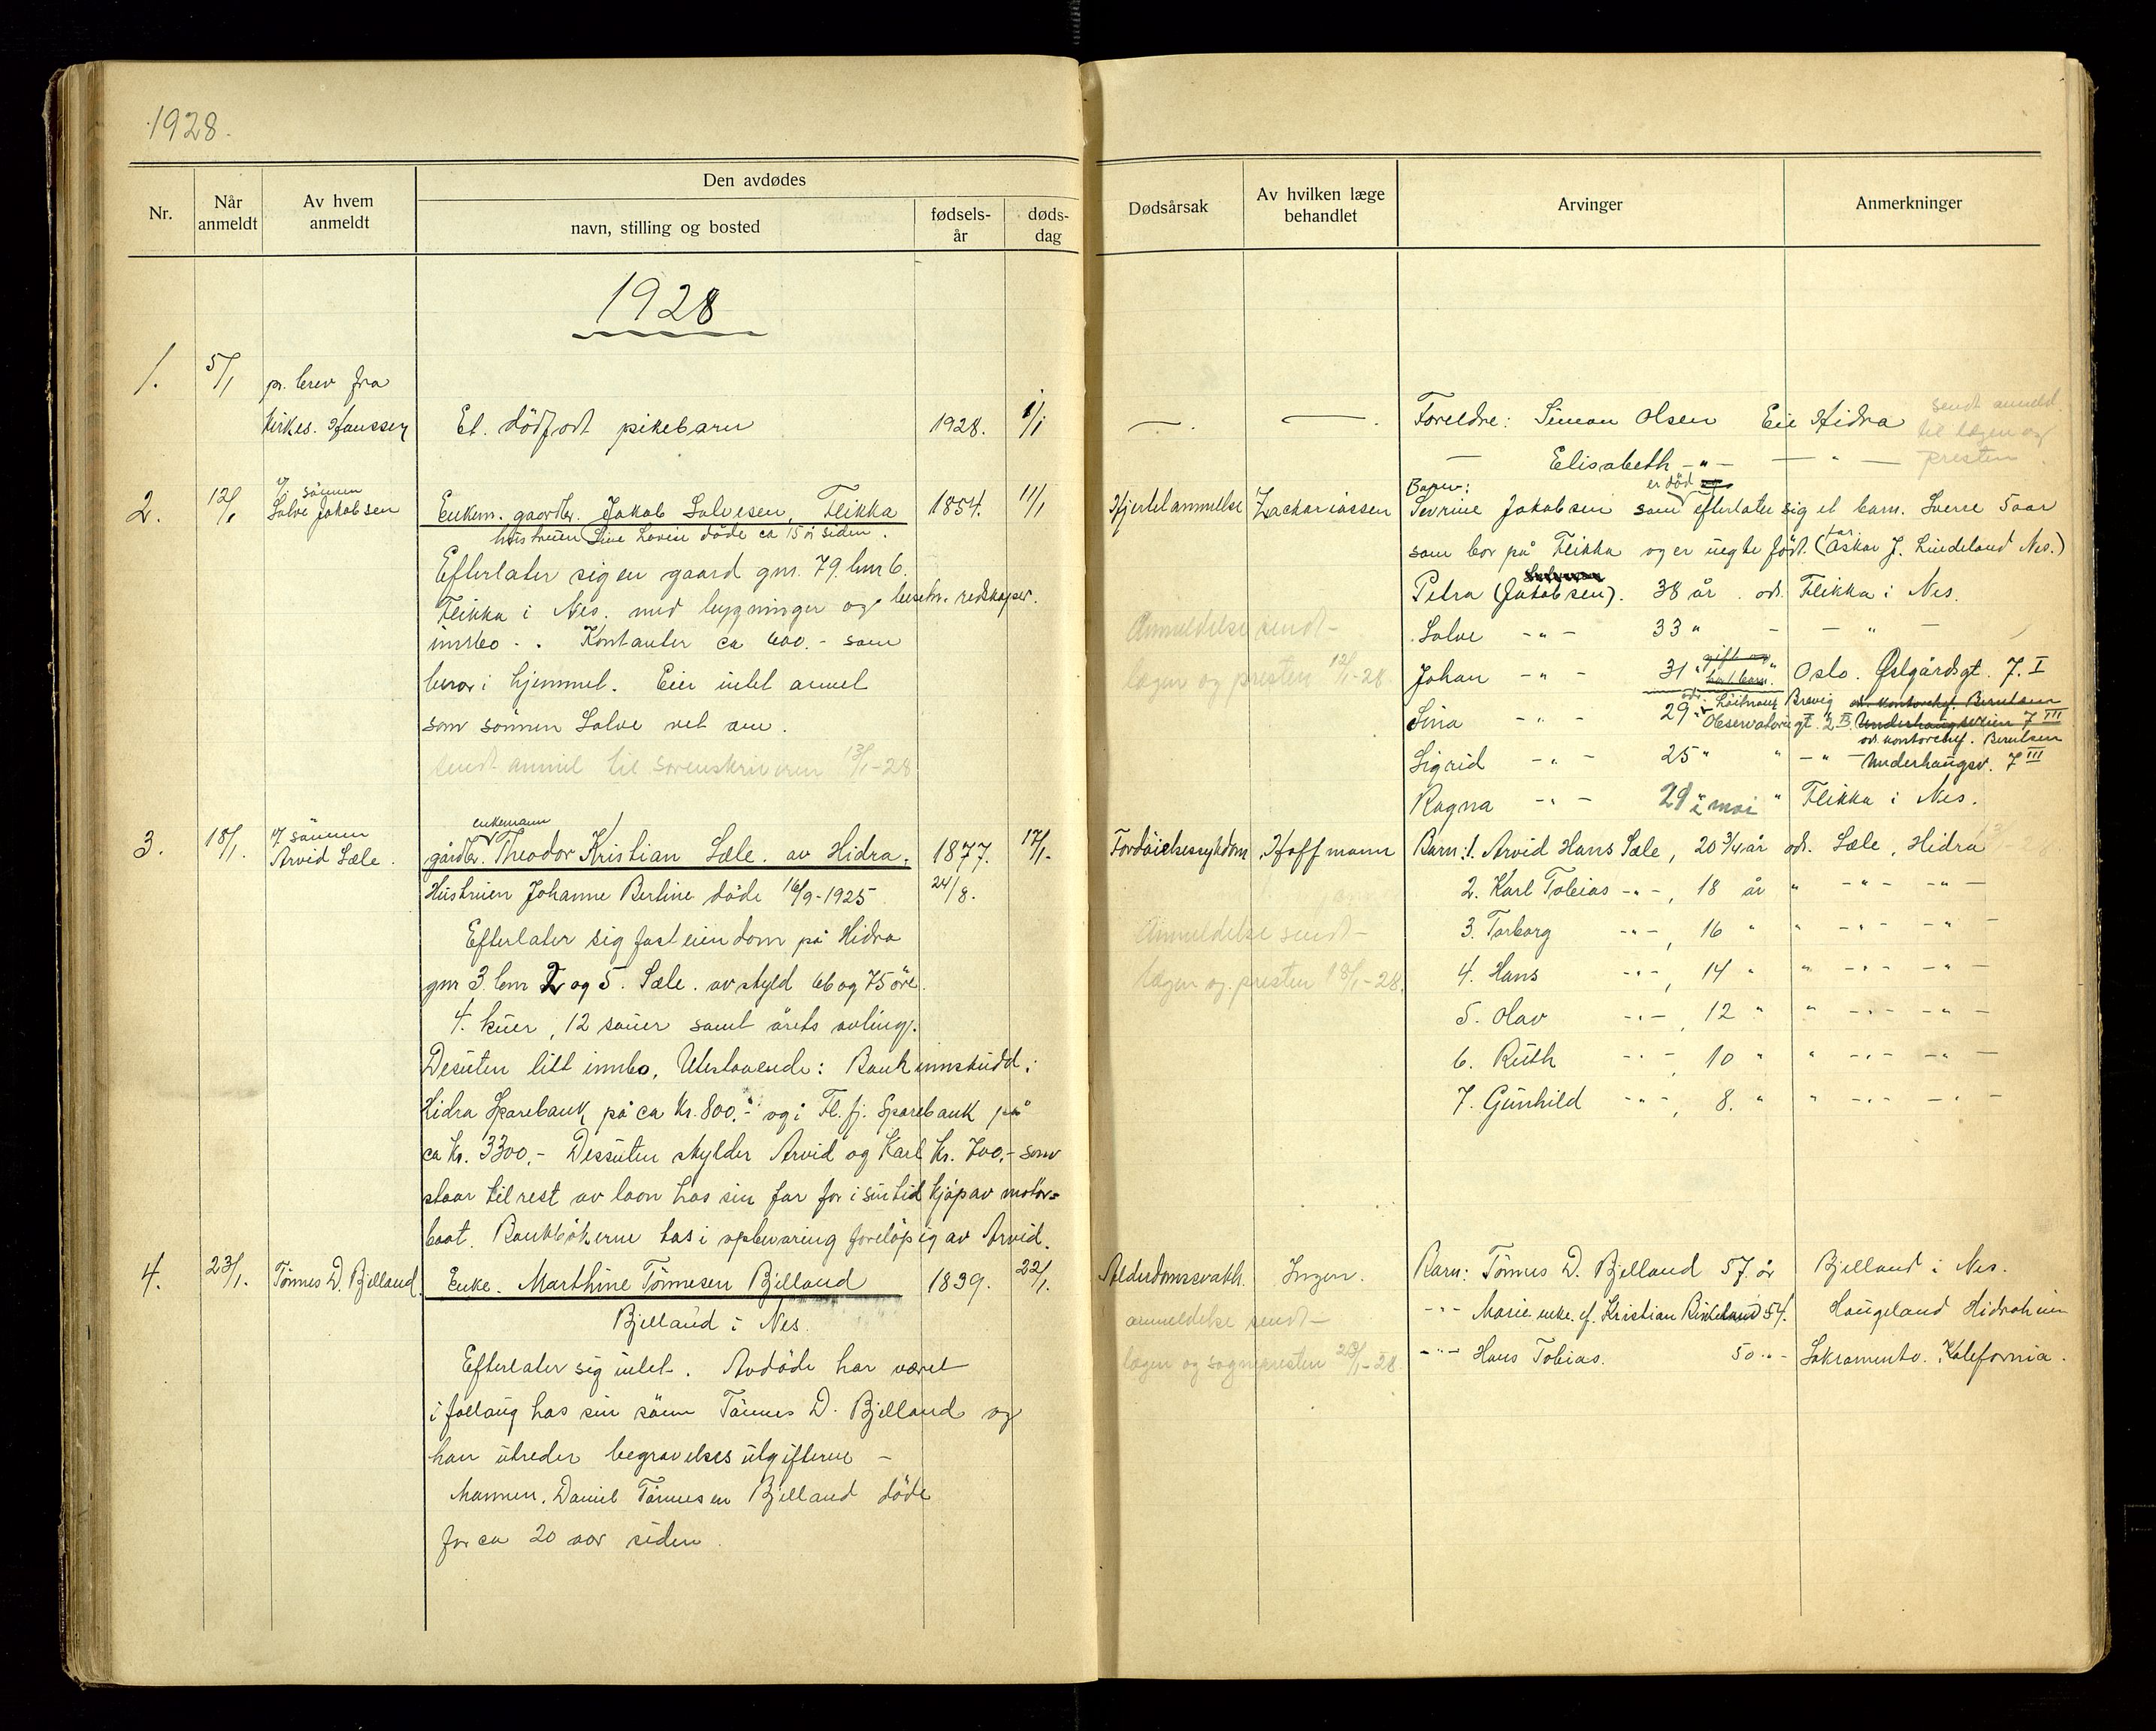 1928.
Nr.
Når anmeldt
Av hvem anmeldt
Den avdødes
navn, stilling og bosted
fødsels-år
døds-dag
Dødsårsak
Av hvilken læge behandlet
Arvinger
Anmerkninger
1928
1. 5/1 p. brev fra
Kirkes. Hanssen Et dödfödt pikebarn 1928. 1/1 — . — .
Foreldre: Simon Olsen Eie Hidra
— Elisabeth -"- — " —
sendt anmeld.
til lægen og
presten
2. 12/1 v/ sönnen
Salve Jakobsen
Enkem. gaardbr. Jakob Salvesen, Flikka 1854. 11/1
hustruen Sine Lovise döde ca 15 år siden.
Efterlater sig en gaard gnr. 79. bnr 6.
Flikka i Nes. med bygninger og besetn. redskaper.
innbo - . Kontanter ca 600.- som
beror i hjemmet. Eier intet annet
som sönnen Salve vet om.
sendt anmel til sorenskriveren 13/1-28
Hjertelammelse Zachariassen
Anmeldelse sendt-
lægen og presten 12/1-28.
Barn: er död
Sevrine Jakobsen som efterlater sig et barn. Sverre 5 aar
som bor på Flikka og er uegte född. (far. Askar J. Lindeland Nes.)
Petra (Jakobsen). 38 år . adr. Flikka i Nes.
Salve -"- 33 " - — " —
Johan -"- 31 " gift og " Oslo. Østgårdsgt. 7. I
Sina -"- 29 " Brevig
Observatoriegt. 2 B. Underhaugsveien 7 III
adr. kontorchef. Berntsen
Sigrid -"- 25 " " -"- Underhaugsv. 7 III
Ragna -"- 29 i mai " Flikka i Nes.
3. 18/1. v/ sönnen
Arvid Sæle.
enkemann
gårdbr. Theodor Kristian Sæle. av Hidra. 1877. 17/1.
Hustruen Johanne Bertine döde 16/9-1925 24/8.
Efterlater sig fast eiendom på Hidra
gnr 3. bnr 2 og 5. Sæle. av skyld 66 og 75 öre.
4. kuer, 12 sauer samt årets avling.
Desuten litt innbo. Utestaaende: Bankinnskudd i
Hidra Sparebank på ca Kr. 800.- og i Fl. fj. Sparebank på
ca Kr. 3300.- Dessuten skylder Arvid og Karl Kr. 700.- som
staar til rest av laan hos sin far for i sin tid kjöp av motor-
baat. Bankbökerne has i opbevaring foreløpig av Arvid.
Fordöielsessykdom Hoffmann
Anmeldelse sendt-
lægen og presten 18/1-28.
Barn: 1. Arvid Hans Sæle, 20 3/4 år adr. Sæle, Hidra
2. Karl Tobias -"-, 18 år " -"- -"-
3. Torborg -"-, 16 " " -"- -"-
4. Hans -"-, 14 " " -"- -"-
5. Olav -"-, 12 " " -"- -"-
6. Ruth -"-, 10 " " -"- -"-
7. Gunhild -"-, 8. " " -"- -"-
4. 23/1. Tönnes D. Bjelland. Enke. Marthine Tönnesen Bjelland 1839. 22/1.
Bjelland i Nes.
Efterlater sig intet. Avdöde har været
i follaug hos sin sönn Tönnes D. Bjelland og
han utreder begravelsesutgifterne -
Mannen. Daniel Tönnesen Bjelland döde
for ca 20 aar siden.
Alderdomssvakh. Ingen.
anmeldelse sendt-
lægen og sognepresten 23/1-28.
Barn: Tönnes D. Bjelland 57. år Bjelland i Nes.
-"- Marie enke. ef. Kristian Birkeland 54. Haugeland Hidraheim
-"- Hans Tobias. 50 "- Sakramento. Kalefornia.